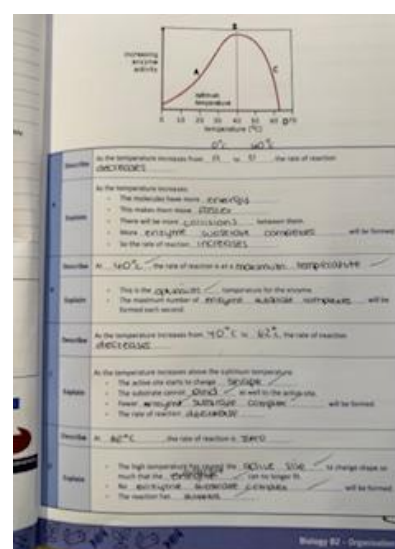 B
increasing
enzyme
activity
A
C
optimum
temperature
0 10 20 30 40 50 60 70
temperature (°C)
0°C 40°C
Describe As the temperature increases from to the rate of reaction
decreases
As the temperature increases:
The molecules have more energy
This makes them move faster
Explain There will be more collisions between them.
More enzyme substrate complexes will be formed
So the rate of reaction increases
Describe At 40°C the rate of reaction is at a maximum temperature
This is the optimum temperature for the enzyme.
Explain The maximum number of enzyme substrate complexes will be
formed each second.
Describe As the temperature increases from 40°C to 62°C, the rate of reaction
decreases
As the temperature increases above the optimum temperature:
The active site starts to change shape
Explain The substrate cannot bind as well to the active site.
Fewer enzyme substrate complex will be formed.
The rate of reaction decrease
Describe At 62°C the rate of reaction is zero
The high temperature has caused the active site to change shape so
Explain much that the can no longer fit.
No enzyme substrate complex will be formed
The reaction has
Biology B2 - Organisation